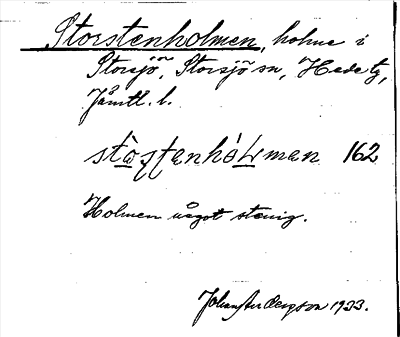 Storstenholmen, holme i
Storsjön, Storsjö sn, Hede tg,
Jämtl. l.
stòstenhòlman 162
Holmen något stenig.
Bengtson 1933.